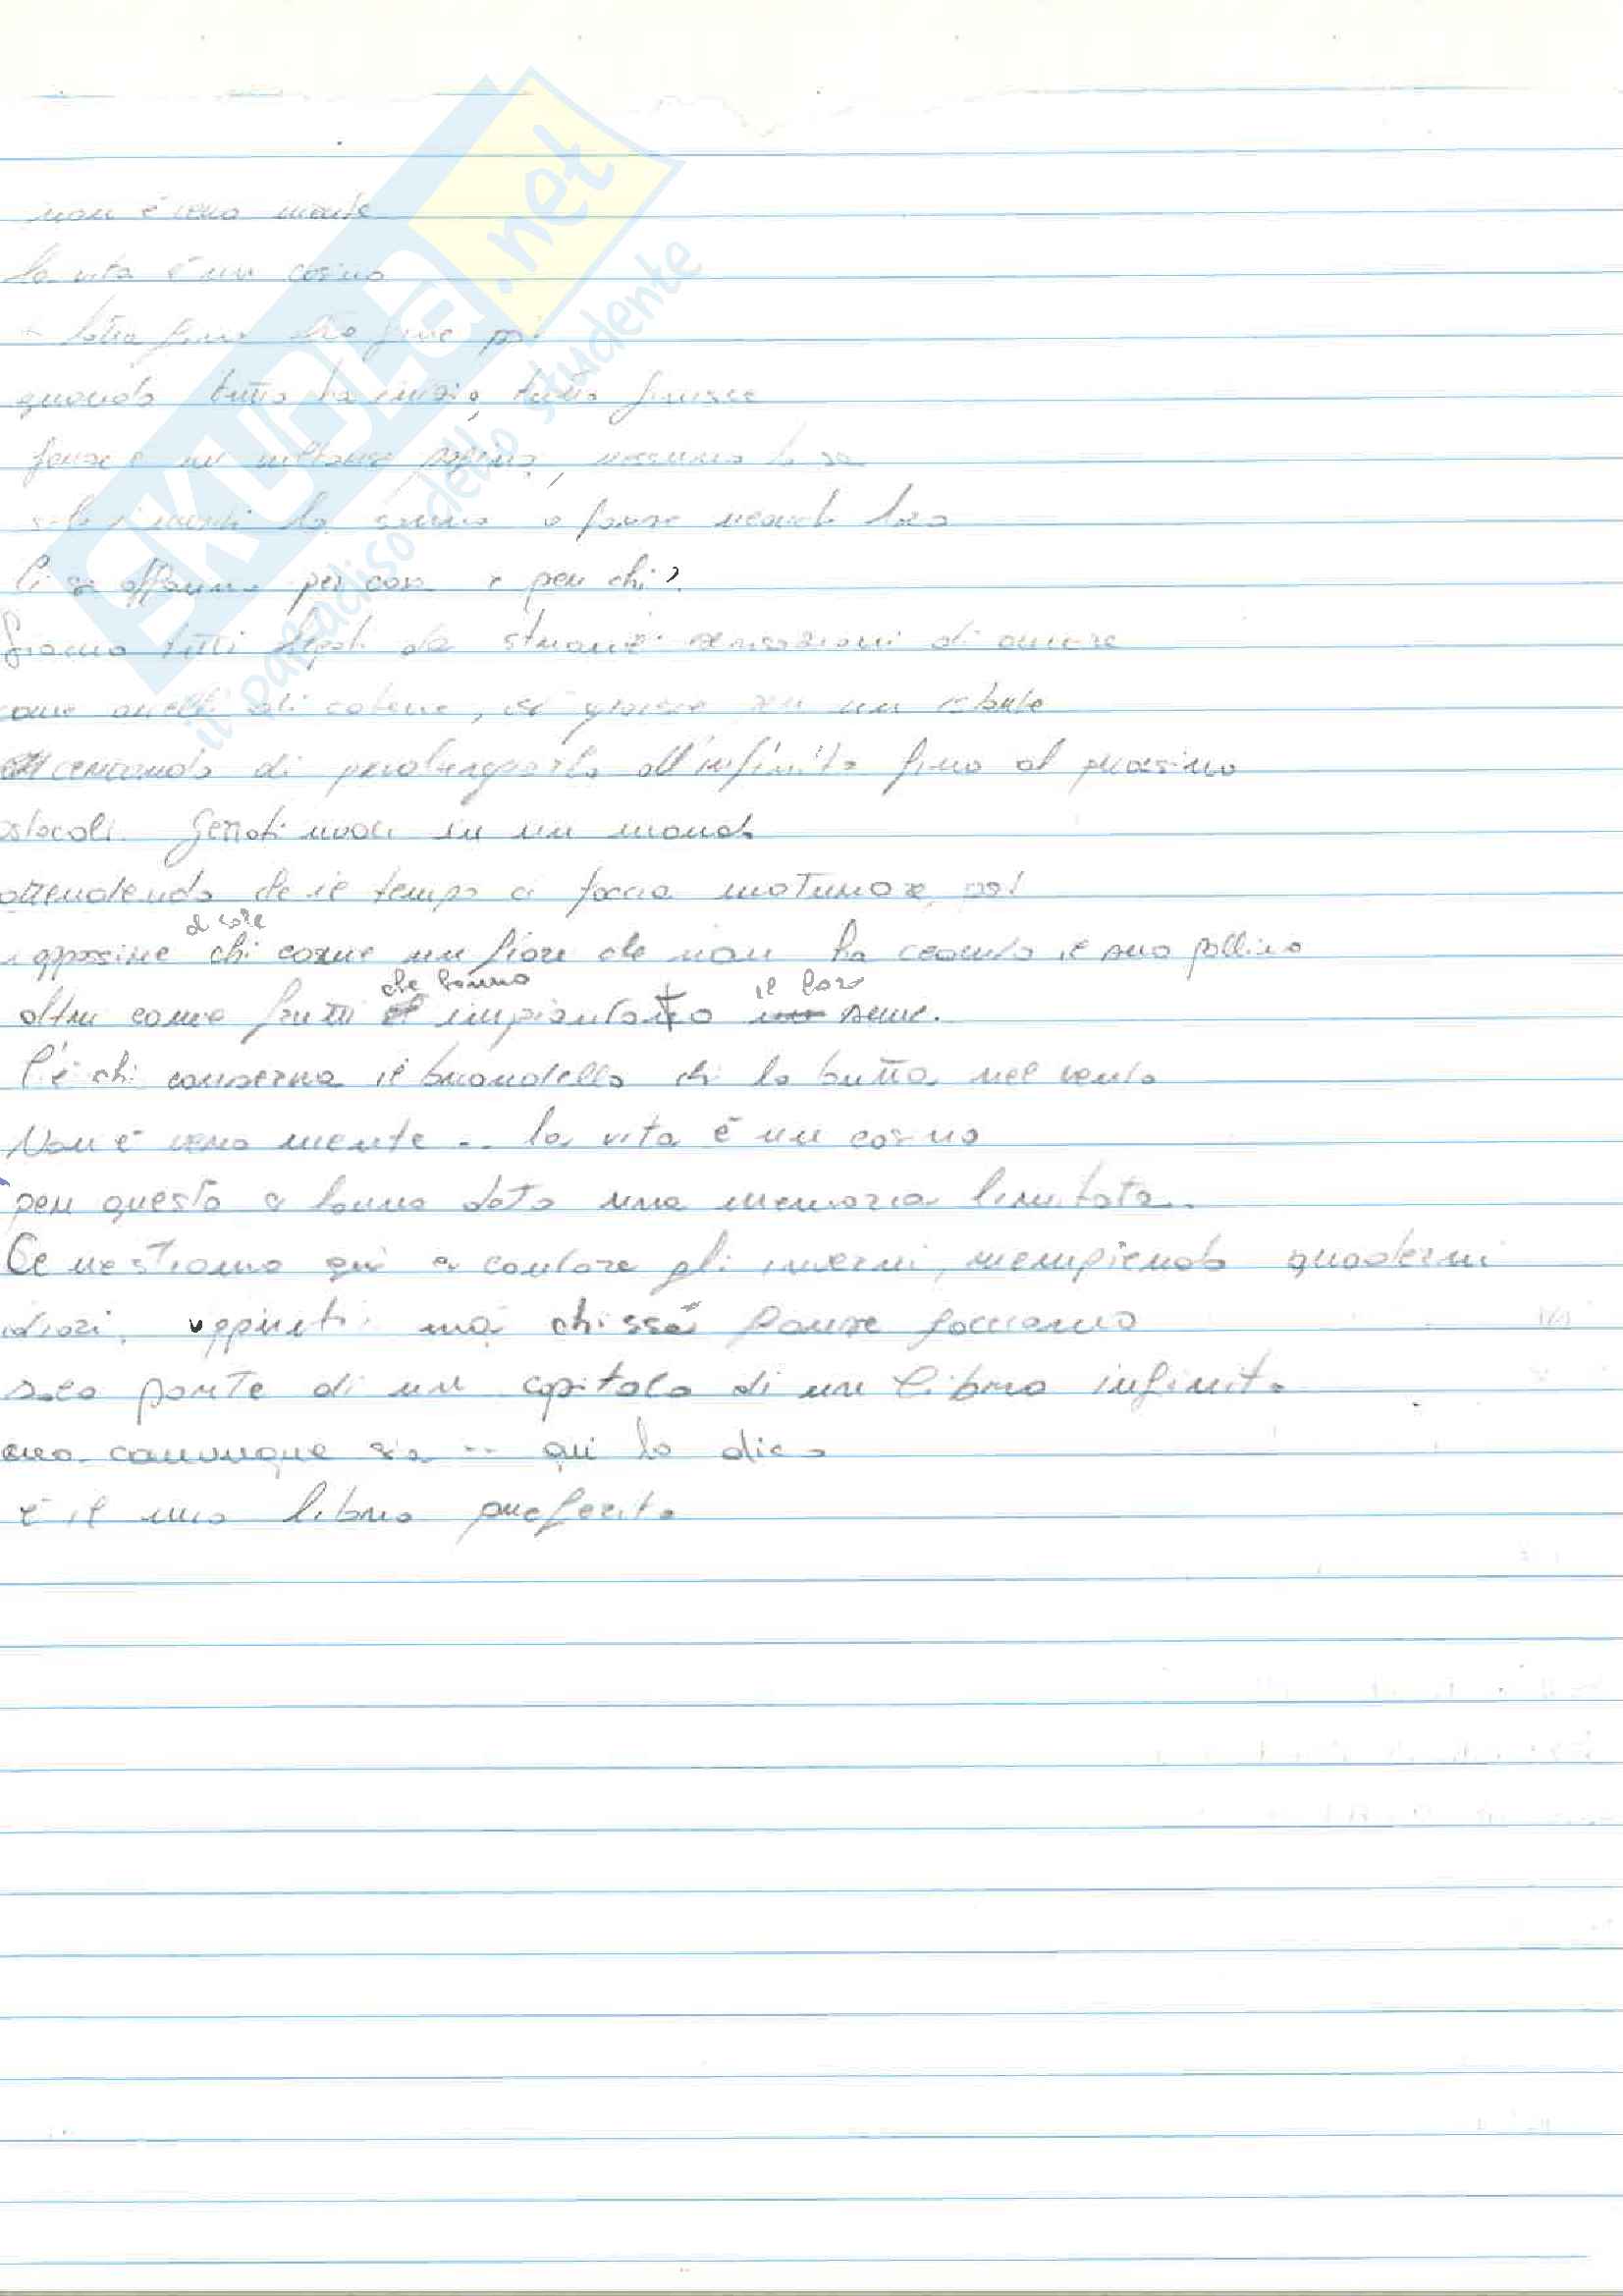 SKUOLA.net
il paradiso dello studente
non è vero niente
la vita è un casino
fine poi
quando tutto ha inizio, tutto finisce
forse è un pagina, nessuno lo sa
lo sanno o forse neanche loro
Ci si affanna per cosa e per chi?
Siamo tutti legati da strane sensazioni di amore
come anelli di catene, si gioisce per un
cercando di prolungarlo all'infinito fino al prossimo
ostacoli. Gettati in un mondo
attendendo che il tempo ci faccia maturare, poi
appassire di sole chi come un fiore che non ha il suo pollino
altri come frutti che hanno impiantato il loro seme.
C'è chi conserva il brandello chi lo butta nel vento
Non è vero niente .. la vita è un casino
per questo ci hanno dato una memoria limitata.
Ce ne stiamo qui a contare gli inverni, riempiendo quaderni
diari, appunti ma chissà forse facciamo
solo parte di un capitolo di un libro infinito
ma comunque sia .. qui lo dico
è il mio libro preferito